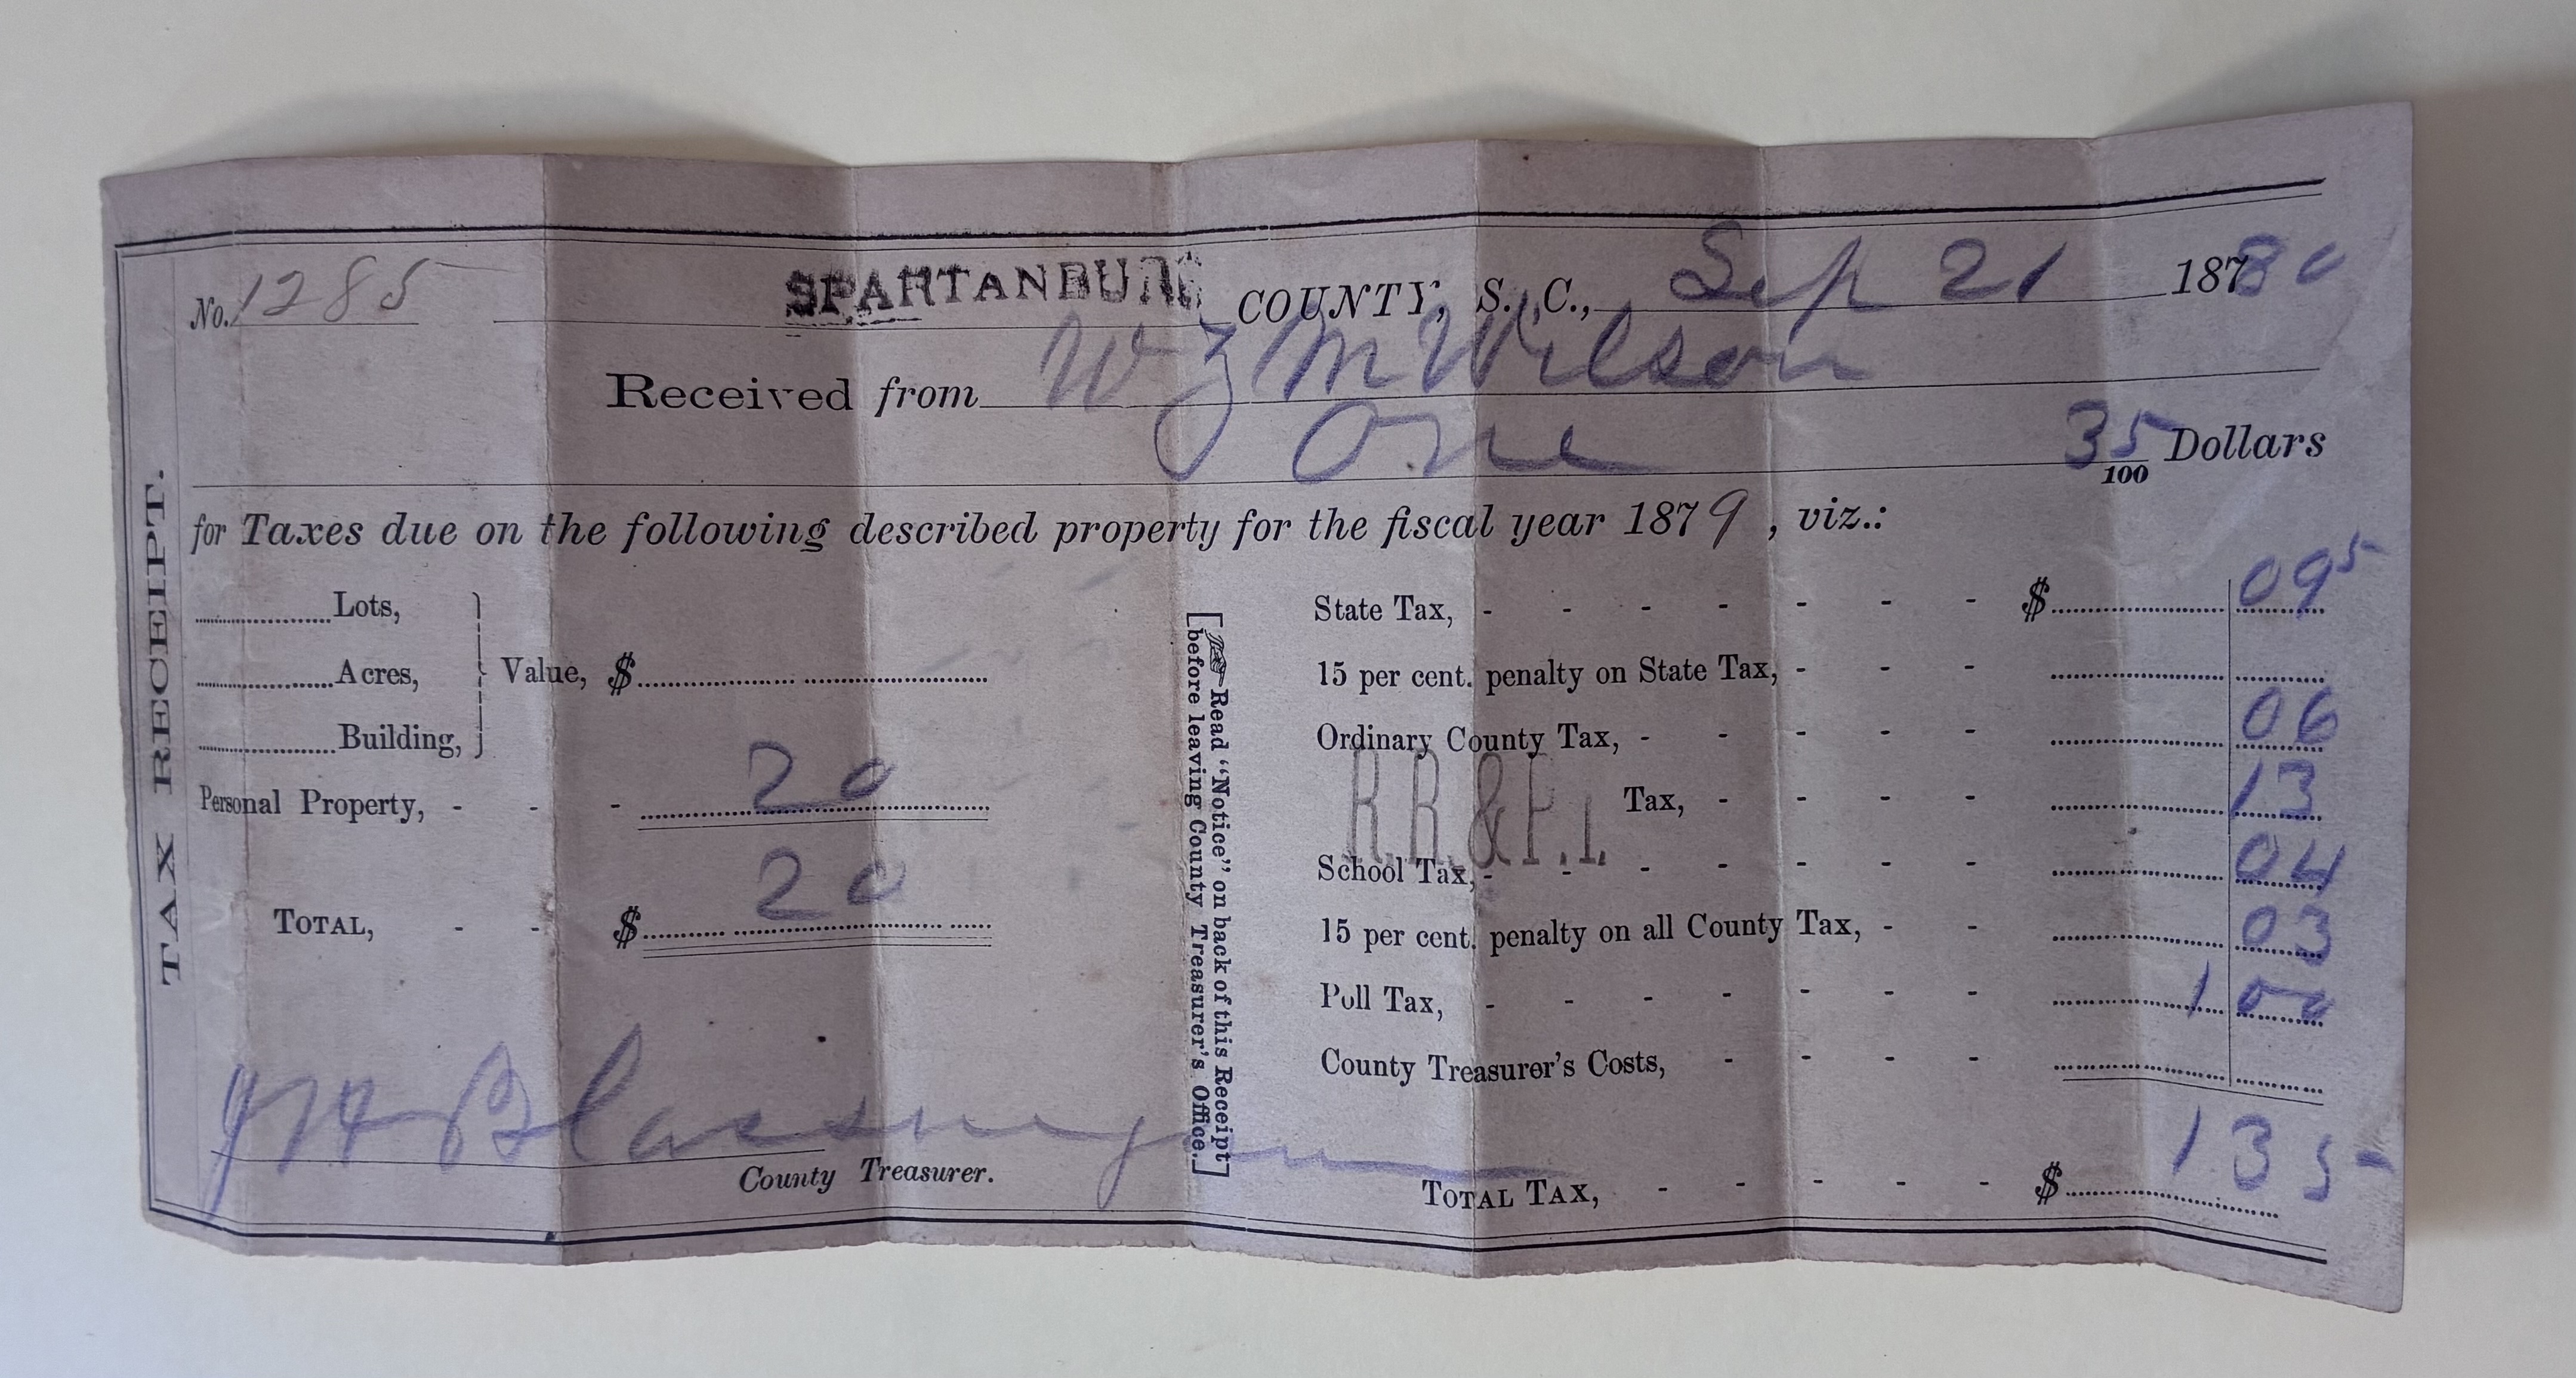 TAX RECEIPT.
No. 1285 SPARTANBURG COUNTY, S. C., Sep 21 18780
Received from W J M Wilson
One 35/100 Dollars
for Taxes due on the following described property for the fiscal year 1879, viz.:
Lots,
Acres,
Building,
Value, $
Personal Property, - - - 20
TOTAL, - - $ 20
J H Blassingame
County Treasurer.
[Read "Notice" on back of this Receipt
before leaving County Treasurer's Office.]
State Tax, - - - - - - - $ 09 5
15 per cent. penalty on State Tax, - - -
Ordinary County Tax, - - - - - 06
R.R. & P.I. Tax, - - - - 13
School Tax, - - - - - - - 04
15 per cent. penalty on all County Tax, - - 03
Poll Tax, - - - - - - - 1 00
County Treasurer's Costs, - - - -
TOTAL TAX, - - - - - $ 1 35